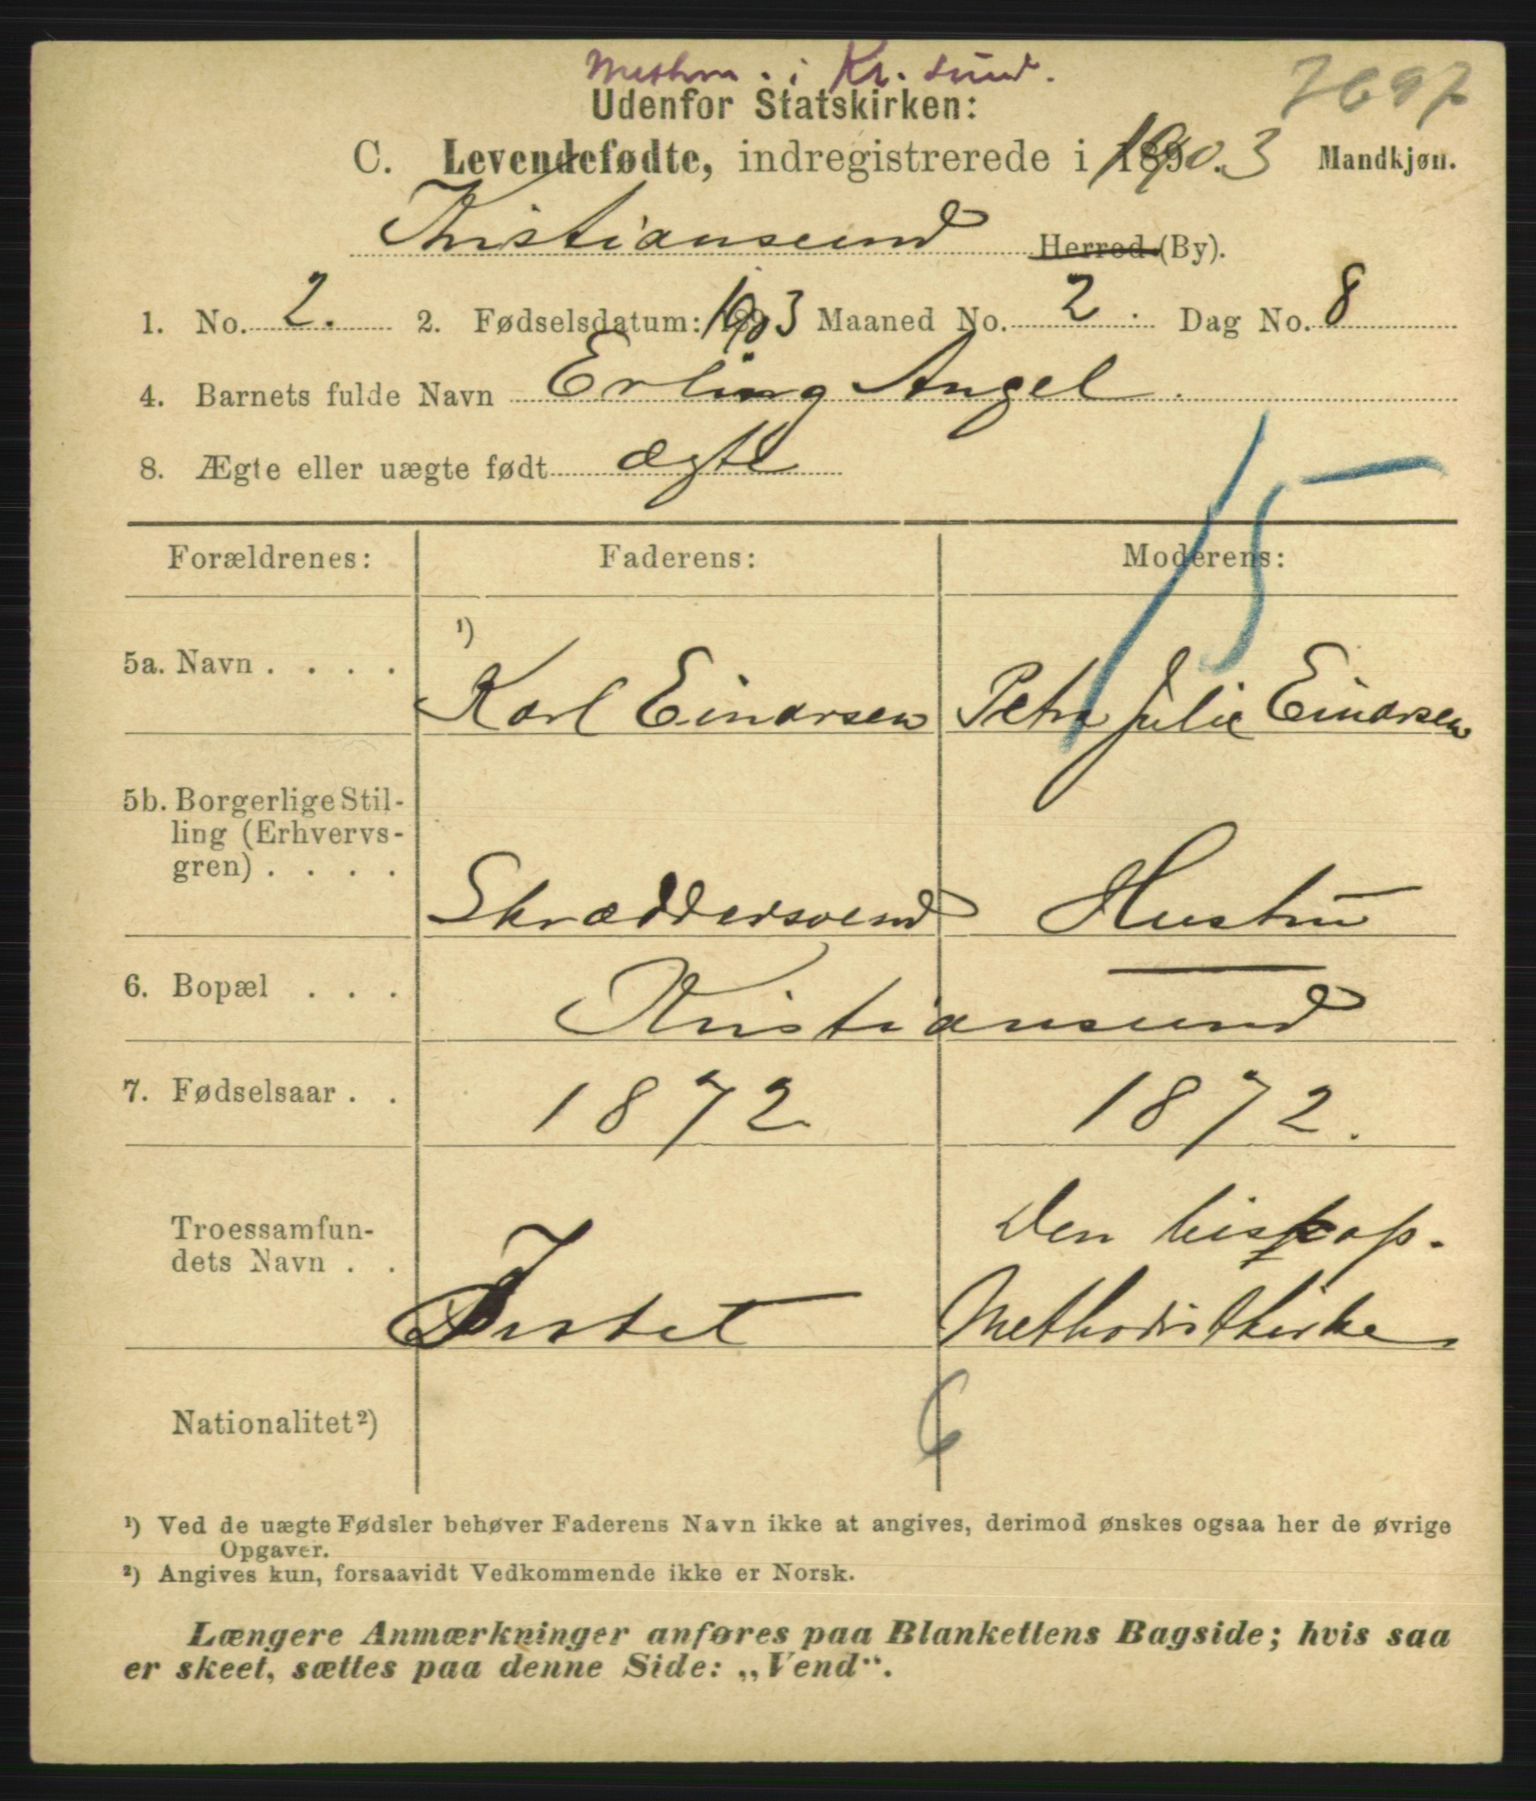 Methm. i Kr. sund.
7697
Udenfor Statskirken:
C. Levendefødte, indregistrerede i 1903 Mandkjøn.
Kristiansund Herred (By).
1. No. 2. 2. Fødselsdatum: 1903 Maaned No. 2. Dag No. 8
4. Barnets fulde Navn Erling Angel.
8. Ægte eller uægte født ægte
15
Forældrenes: Faderens: Moderens:
5a. Navn . . . . ¹) Karl Einarsen Petra Julie Einarsen
5b. Borgerlige Stil-
ling (Erhvervs-
gren) . . . . Skræddersvend Hustru
6. Bopæl . . . Kristiansund
7. Fødselsaar . . 1872 1872.
Troessamfun-
dets Navn . . Intet Den biskop.
Methodistkirke
Nationalitet ²)
6
¹) Ved de uægte Fødsler behøver Faderens Navn ikke at angives, derimod ønskes ogsaa her de øvrige
Opgaver.
²) Angives kun, forsaavidt Vedkommende ikke er Norsk.
Længere Anmærkninger anføres paa Blankettens Bagside; hvis saa
er skeet, sættes paa denne Side: „Vend“.